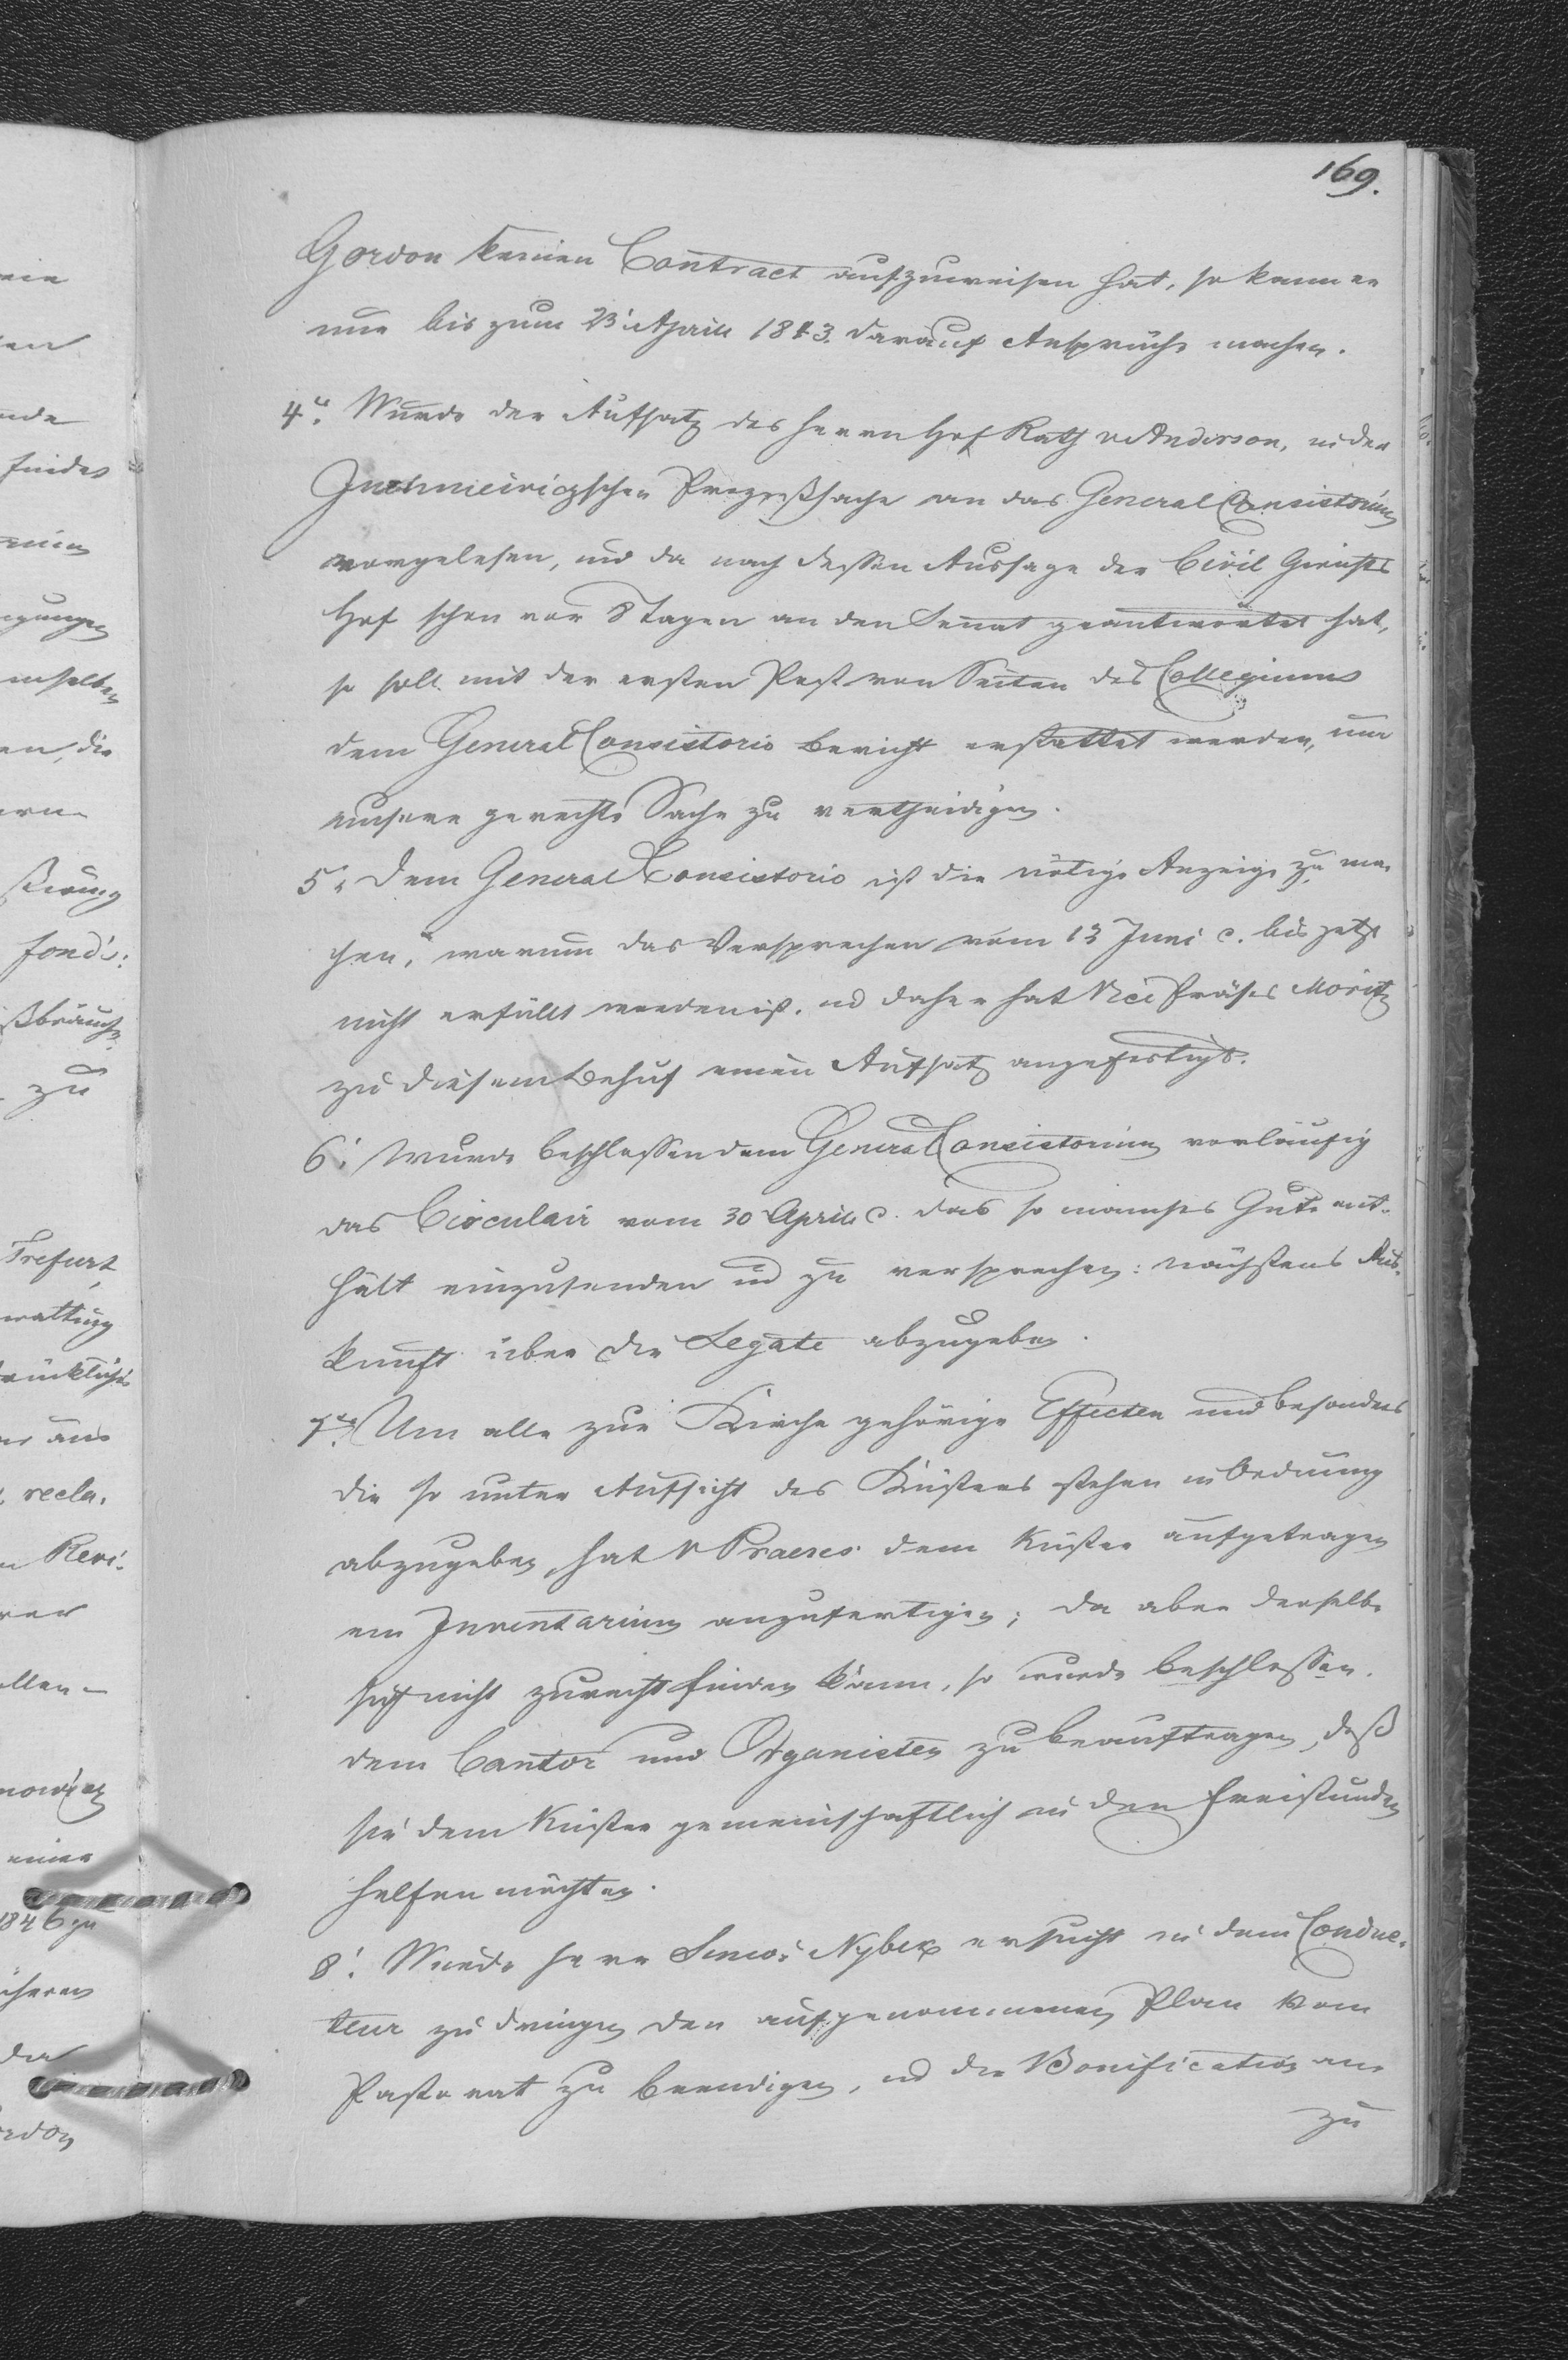 169.
Gordon keinen Contract aufzuweisen hat, so kann er
nur bis zum 23' Aprill 1843. darauf Ansprüche machen.
4.' Wurde der Aufsatz des Herrn Hof Rath v Anderson, in der
Prozeßsache an das General Consistorium
vorgelesen, und da nach dessen Aussage der Civil Gerichts
Hof schon vor 8 Tagen an den Senat geantwortet hat,
so soll mit der ersten Post von Seiten des Collegiums
dem General Consistorio Bericht erstattet werden, um
unsere gerechte Sache zu vertheidigen.
5.' Dem General Consistorio ist die nötige Anzeige zu ma¬
chen, warum das Versprechen vom 13 Juni c. bis jetzt
nicht erfüllt worden ist. und daher hat Vice Präses Moritz
zu diesem Behuf einen Aufsatz angefertigt.
6.' Wurde beschlossen dem General Consistorium vorläufig
das Circulair vom 30 Aprill c. das so manches Gute ent¬
hält einzusenden und zu versprechen: nächstens Aus¬
kunft über die Legate abzugeben.
7. Um alle zur Kirche gehörige Effecten und besonders
die so unter Aufsicht des Küsters stehen in Ordnung
abzugeben, hat V Praeses dem Küster aufgetragen
ein Inventarium anzufertigen; da aber derselbe
sich nicht zurecht finden kann, so wurde beschlossen.
dem Cantor und Organisten zu beauftragen, daß
sie dem Küster gemeinschaftlich in den Freistunden
helfen möchten.
8.' Wurde Herr Senior Nyber ersucht in dem Conduc¬
teur zu dringen den aufgenommenen Plan vom
Pastorat zu beendigen, und die Bonification an¬
zu